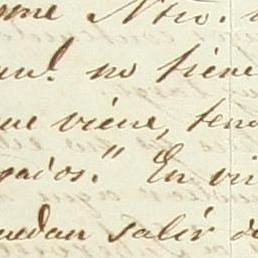 me Ntro.
no tiene
ue viene, ten
gados." En vi
uedan salir de